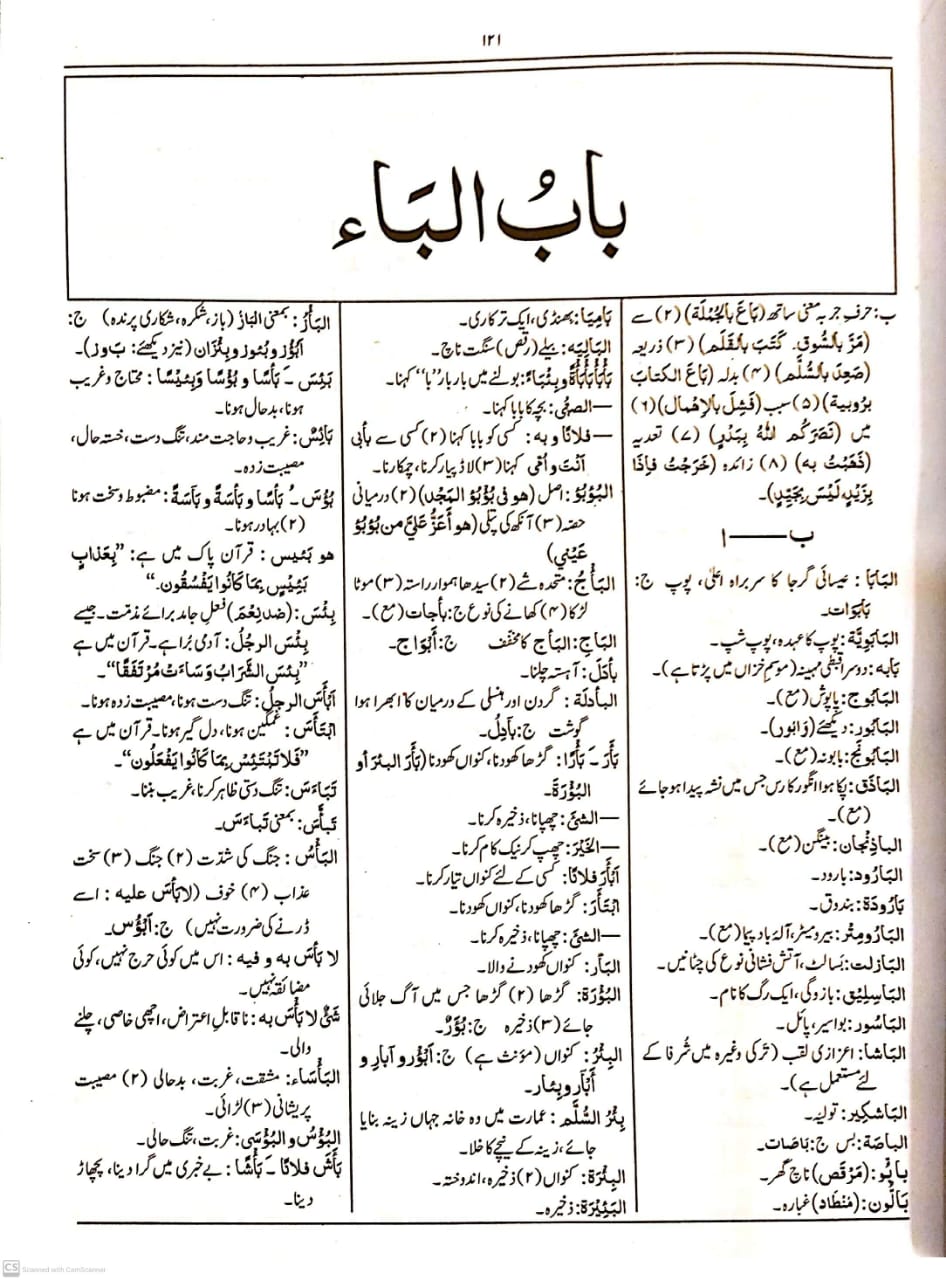 ۱۲۱
بابُ البَاء
ب: حرفِ جر بہ معنی ساتھ (بَاعَ بالجُملَة) (۲) سے
(مَرَّ بالسُّوق۔ کَتَبَ بالقَلَم) (۳) ذریعہ
(صَعِدَ بالسُّلَّم) (۴) بدلہ (بَاعَ الکتابَ
برُوبیة) (۵) سبب (فَشِلَ بالاِهْمال) (۶)
میں (نَصَرَکُم اللهُ بِبَدْرٍ) (۷) تعدیہ
(ذَهَبْتُ به) (۸) زائدہ (خَرَجْتُ فإذَا
بِزَیْدٍ لَیْسَ بِجَیِّدٍ)۔
ب——ا
البَابَا: عیسائی گرجا کا سربراہ اعلیٰ، پوپ ج:
بَابَوات۔
البَابَوِیَّة: پوپ کا عہدہ، پوپ شپ۔
بَابه: دوسرا قبطی مہینہ (موسمِ خزاں میں پڑتا ہے)۔
البَابُوج: پاپوش (مع)۔
البَابُور: دیکھئے (وَابُور)۔
البَابُونَج: بابونہ (مع)۔
البَاذَق: پکا ہوا انگور کا رس جس میں نشہ پیدا ہو جائے
(مع)۔
الباذِنْجان: بیگن (مع)۔
البَارُود: بارود۔
بَارُودَة: بندوق۔
البَارُومِتْر: بیرومیٹر، آلۂ باد پیما (مع)۔
البَازلت: بَسالٹ، آتش فشانی نوع کی چٹانیں۔
البَاسِلِیْق: بازو کی، ایک رگ کا نام۔
البَاسُور: بواسیر، پائل۔
البَاشا: اعزازی لقب (ترکی وغیرہ میں شُرفا کے
لئے مستعمل ہے)۔
البَاشکِیر: تولیہ۔
الباصَة: بس ج: بَاصَات۔
بایُو: (مَرْقَص) ناچ گھر۔
بَالُون: (مُنْطَاد) غبارہ۔
بَامِیَا: بھنڈی، ایک ترکاری۔
البَالِیَه: بیلے (رقص) سنگت ناچ۔
بَأْبَأَ بَأْبَأَةً وبِئْبَاءً: بولنے میں بار بار ”با“ کہنا۔
—الصبیُّ: بچہ کا بابا کہنا۔
—فلانًا و به: کسی کو بابا کہنا (۲) کسی سے بأبی
أنْتَ و أُمِّی کہنا (۳) لاڈ پیار کرنا، چمکارنا۔
البُؤْبُؤ: اصل (هو فی بُؤْبُؤِ المَجْد) (۲) درمیانی
حصہ (۳) آنکھ کی پتلی (هو أَعَزُّ عَلَیَّ من بُؤْبُؤِ
عَیْنِي)
البَأْجُ: متحدہ شے (۲) سیدھا ہموار راستہ (۳) موٹا
لڑکا (۴) کھانے کی نوع ج: بأجات (مع)۔
البَاجِ: البَأج کا مخفف ج: أَبْوَاج۔
بأْدَلَ: آہستہ چلنا۔
البأدلَة: گردن اور ہنسلی کے درمیان کا ابھرا ہوا
گوشت ج: بآدِلُ۔
بَأَرَ ـَ بَأْرًا: گڑھا کھودنا، کنواں کھودنا (بَأَرَ البئرَ أو
البُؤْرَةَ۔
—الشئَ: چھپانا، ذخیرہ کرنا۔
—الخَیْرَ: چھپ کر نیک کام کرنا۔
أَبْأَرَ فلانًا: کسی کے لئے کنواں تیار کرنا۔
ابْتَأَرَ: گڑھا کھودنا، کنواں کھودنا۔
—الشئَ: چھپانا، ذخیرہ کرنا۔
البَآر: کنواں کھودنے والا۔
البُؤْرَة: گڑھا (۲) گڑھا جس میں آگ جلائی
جائے (۳) ذخیرہ ج: بُؤَرٌ۔
البِئْر: کنواں (مؤنث ہے) ج: أَبْؤُر و آبار و
أَبْآر و بِئار۔
بِئْرُ السُّلَّم: عمارت میں وہ خانہ جہاں زینہ بنایا
جائے، زینہ کے نیچے کا خلا۔
البِئْرَة: کنواں (۲) ذخیرہ، اندوختہ۔
البَئِیْرَة: ذخیرہ۔
البَأْزُ: بمعنی البَاز (باز، شکرہ، شکاری پرندہ) ج:
أَبْؤُز و بُئوز و بِئْزَان (نیز دیکھئے: بَوز)۔
بَئِسَ ـَ بَأْسًا و بُؤْسًا وَبَئِیْسًا: محتاج و غریب
ہونا، بدحال ہونا۔
بَائِسٌ: غریب و حاجت مند، تنگ دست، خستہ حال،
مصیبت زدہ۔
بَؤُسَ ـُ بَأْسًا و بَأْسَةً و بَآسَةً: مضبوط و سخت ہونا
(۲) بہادر ہونا۔
هو بَئِیس: قرآن پاک میں ہے: ”بِعَذابٍ
بَئِیْسٍ بِمَا کَانُوا یَفْسُقُون۔“
بِئْسَ: (ضد نِعْمَ) فعل جامد برائے مذمت۔ جیسے
بِئْسَ الرجلُ: آدمی بُرا ہے۔ قرآن میں ہے
”بِئْسَ الشَّرَابُ وَسَاءَتْ مُرْتَفَقًا“۔
أَبْأَسَ الرجلُ: تنگ دست ہونا، مصیبت زدہ ہونا۔
ابْتَأَسَ: غمگین ہونا، دل گیر ہونا۔ قرآن میں ہے
”فَلا تَبْتَئِسْ بِمَا کَانُوا یَفْعَلُون“۔
تَبَاءَسَ: تنگ دستی ظاہر کرنا، غریب بننا۔
تَبأَّسَ: بمعنی تَبَاءَسَ۔
البَأْسُ: جنگ کی شدّت (۲) جنگ (۳) سخت
عذاب (۴) خوف (لا بَأسَ علیه: اسے
ڈرنے کی ضرورت نہیں) ج: أَبْؤُس۔
لا بَأْسَ به و فیه: اس میں کوئی حرج نہیں، کوئی
مضائقہ نہیں۔
شَیْءٌ لا بَأْسَ به: ناقابلِ اعتراض، اچھی خاصی، چلنے
والی۔
البَأْسَاء: مشقت، غربت، بدحالی (۲) مصیبت
پریشانی (۳) لڑائی۔
البُؤْسُ و البُؤْسَی: غربت، تنگ حالی۔
بَأَشَ فلانًا ـَ بَأْشًا: بے خبری میں گرا دینا، پچھاڑ
دینا۔
CS Scanned with CamScanner